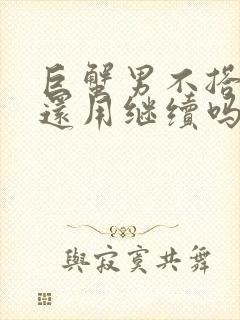 巨蟹男不搭
還用继续吗
與寂寞共舞